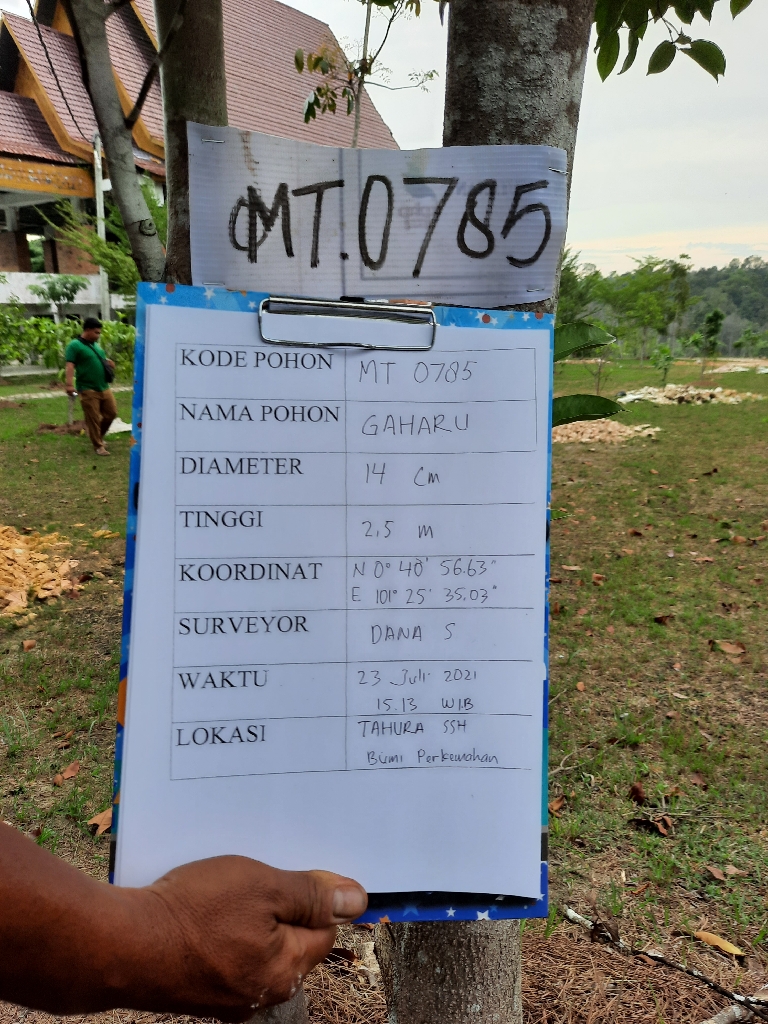 MT.0785
KODE POHON MT 0785
NAMA POHON GAHARU
DIAMETER 14 cm
TINGGI 2,5 m
KOORDINAT N 0° 40' 56.63"
E 101° 25' 35.03"
SURVEYOR DANA S
WAKTU 23 Juli 2021
15.13 WIB
LOKASI TAHURA SSH
Bumi Perkemahan